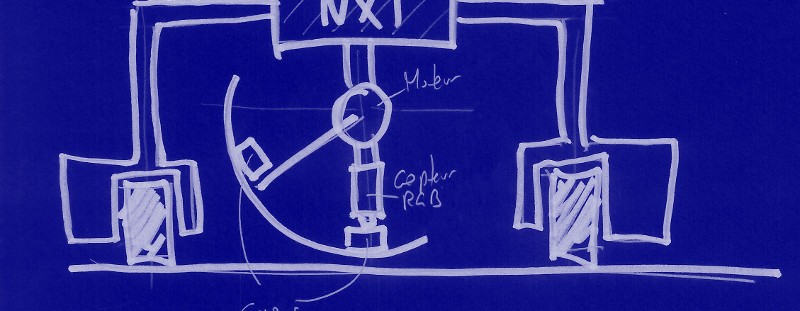 NXT
Moteur
Capteur
RGB